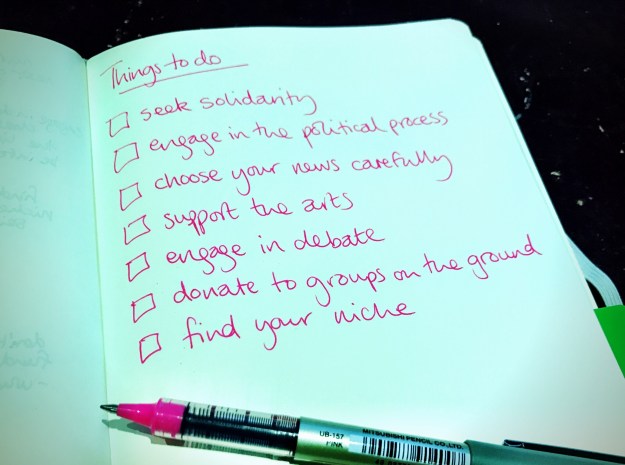 Things to do
seek solidarity
engage in the political process
choose your news carefully
support the arts
engage in debate
donate to groups on the ground
find your niche
UB-157
PINK
MITSUBISHI PENCIL CO.,LTD.